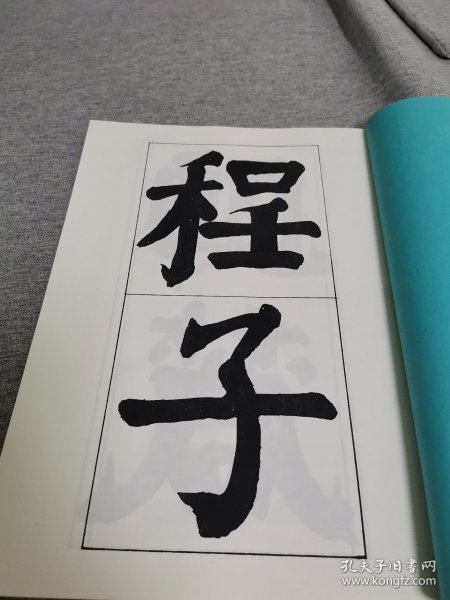 程
子
孔夫子旧书网
www.kongfz.com